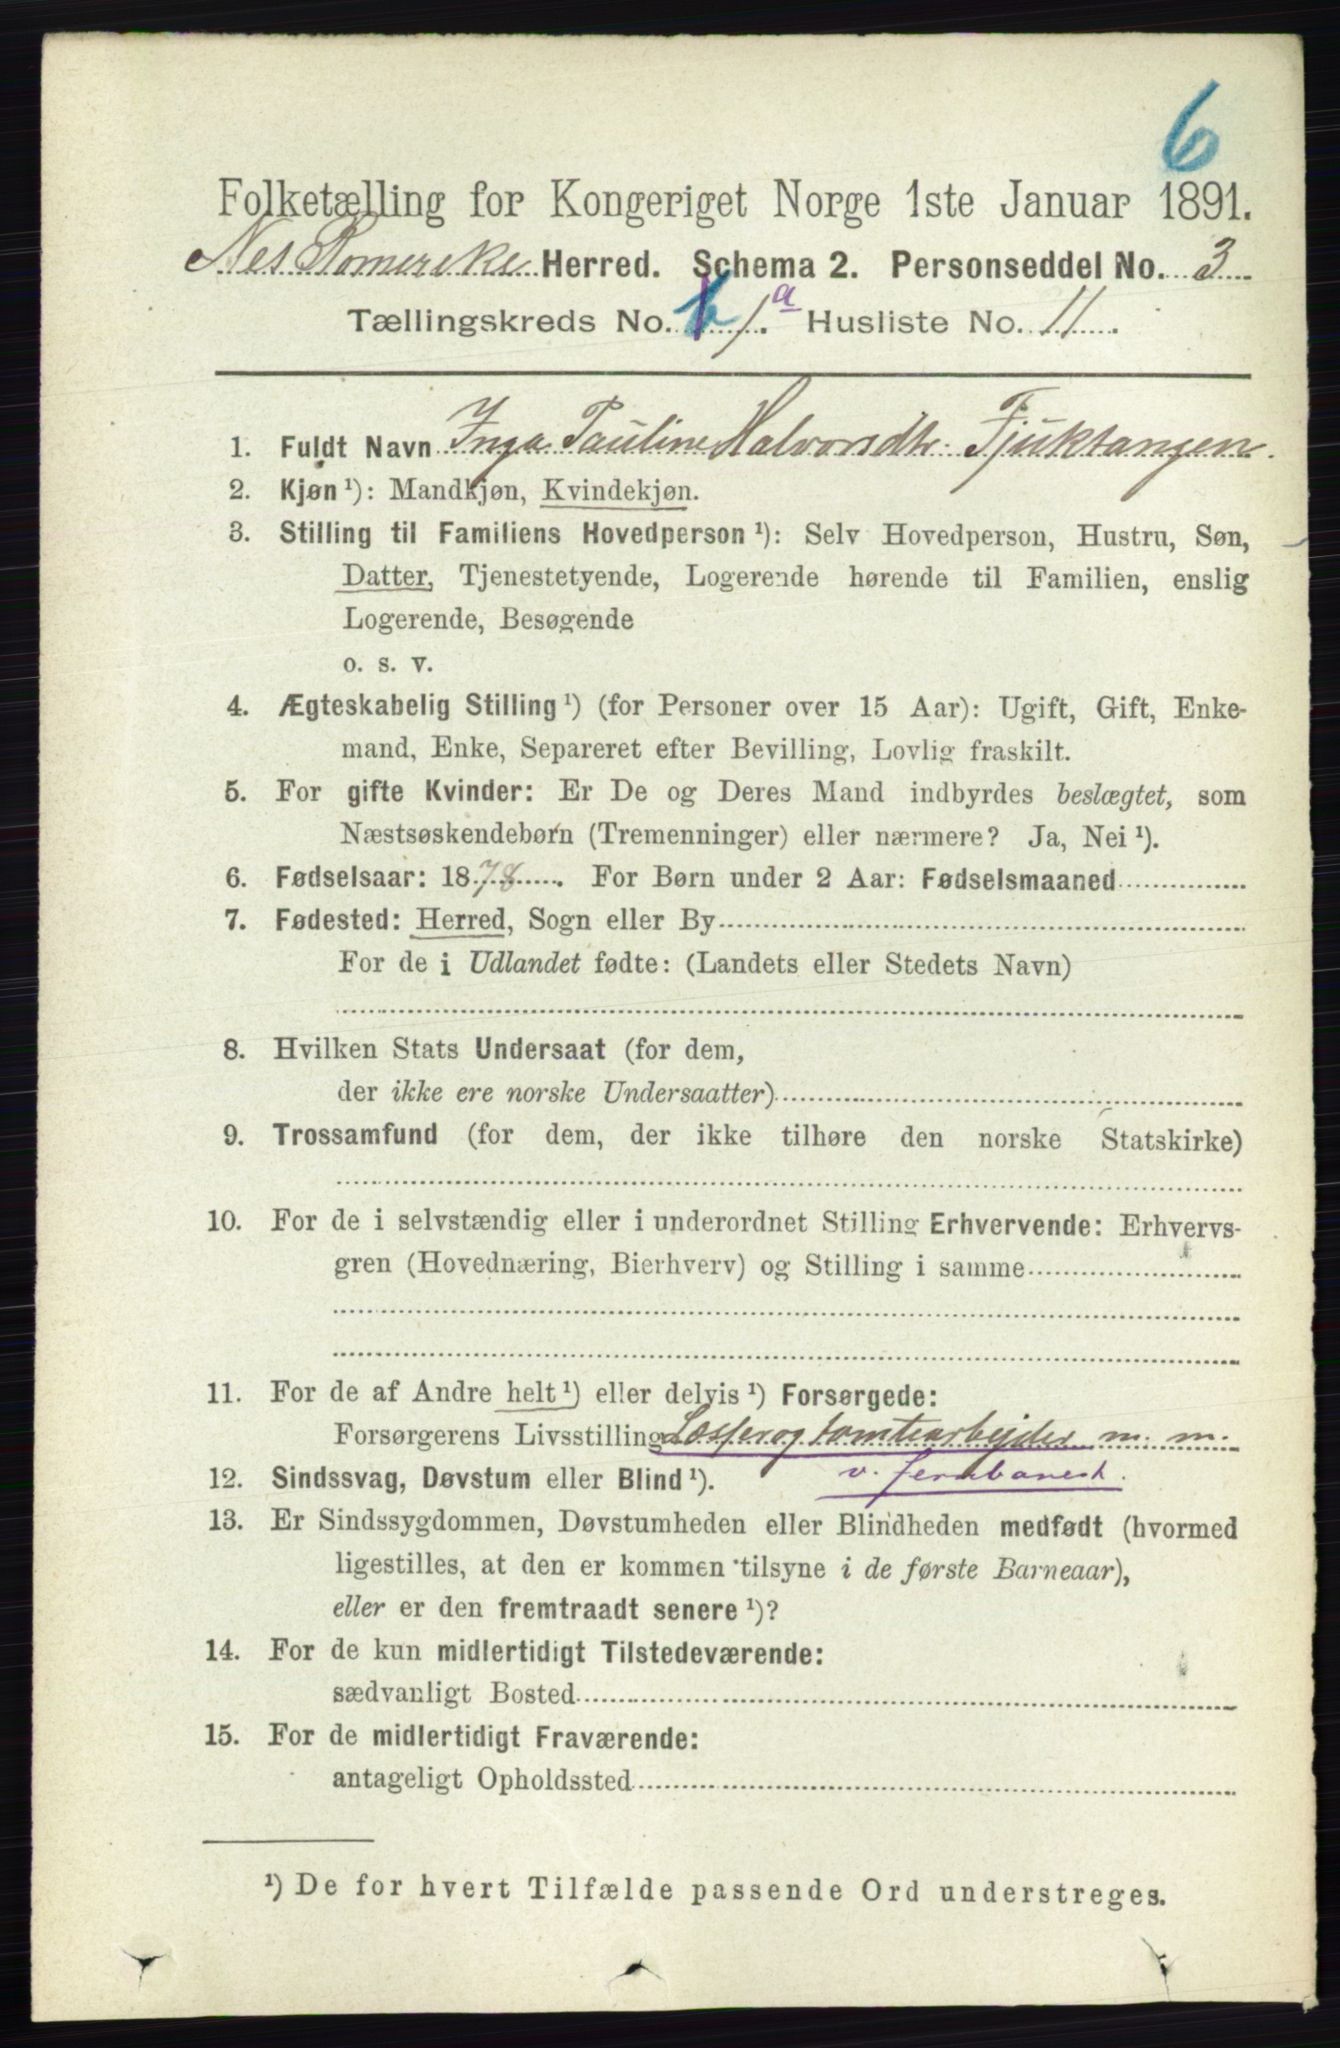 6
Folketælling for Kongeriget Norge 1ste Januar 1891.
Nes Romerike Herred. Schema 2. Personseddel No. 3
Tællingskreds No. 1a. Husliste No. 11.
1. Fuldt Navn Inga Pauline Halvorsdtr. Fjuktangen.
2. Kjøn ¹): Mandkjøn, Kvindekjøn.
3. Stilling til Familiens Hovedperson ¹): Selv Hovedperson, Hustru, Søn,
Datter, Tjenestetyende, Logerende hørende til Familien, enslig
Logerende, Besøgende
o. s. v.
4. Ægteskabelig Stilling ¹) (for Personer over 15 Aar): Ugift, Gift, Enke-
mand, Enke, Separeret efter Bevilling, Lovlig fraskilt.
5. For gifte Kvinder: Er De og Deres Mand indbyrdes beslægtet, som
Næstsøskendebørn (Tremenninger) eller nærmere? Ja, Nei ¹).
6. Fødselsaar: 1878. For Børn under 2 Aar: Fødselsmaaned
7. Fødested: Herred, Sogn eller By
For de i Udlandet fødte: (Landets eller Stedets Navn)
8. Hvilken Stats Undersaat (for dem,
der ikke ere norske Undersaatter)
9. Trossamfund (for dem, der ikke tilhøre den norske Statskirke)
10. For de i selvstændig eller i underordnet Stilling Erhvervende: Erhvervs-
gren (Hovednæring, Bierhverv) og Stilling i samme
11. For de af Andre helt ¹) eller delvis ¹) Forsørgede:
Forsørgerens Livsstilling Losser og tomtearbejder m. m.
12. Sindssvag, Døvstum eller Blind ¹). v. Jernbanest.
13. Er Sindssygdommen, Døvstumheden eller Blindheden medfødt (hvormed
ligestilles, at den er kommen tilsyne i de første Barneaar),
eller er den fremtraadt senere ¹)?
14. For de kun midlertidigt Tilstedeværende:
sædvanligt Bosted
15. For de midlertidigt Fraværende:
antageligt Opholdssted
¹) De for hvert Tilfælde passende Ord understreges.